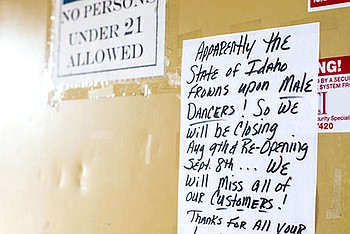 NO PERSONS
UNDER 21
ALLOWED
APPARENTLY THE
STATE OF IDAHO
FROWNS UPON MALE
DANCERS! SO WE
WILL BE CLOSING
AUG 9th & RE-OPENING
SEPT. 8th... WE
WILL MISS ALL OF
OUR CUSTOMERS!
THANKS FOR ALL YOUR
NG!
D BY A SECUR
SYSTEM FROM
urity Speciali
7420